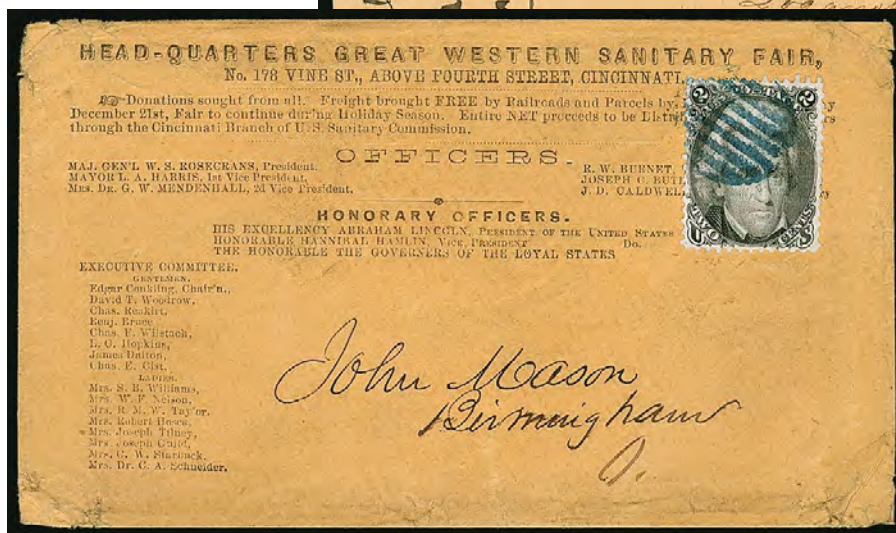 HEAD-QUARTERS GREAT WESTERN SANITARY FAIR,
No. 178 VINE ST., ABOVE FOURTH STREET, CINCINNATI.
Donations sought from all. Freight brought FREE by Railroads and Parcels by
December 21st, Fair to continue during Holiday Season. Entire NET proceeds to be
through the Cincinnati Branch of U.S. Sanitary Commission.
OFFICERS.
MAJ. GEN'L W. S. ROSECRANS, President.
MAYOR L. A. HARRIS, 1st Vice President.
Mrs. Dr. G. W. MENDENHALL, 2d Vice President.
R. W. BURNET,
JOSEPH C.
J. D. CALDWELL
2 2
U.S. POSTAGE
TWO CENTS
HONORARY OFFICERS.
HIS EXCELLENCY ABRAHAM LINCOLN, PRESIDENT OF THE UNITED STATES
HONORABLE HANNIBAL HAMLIN, VICE PRESIDENT Do.
THE HONORABLE THE GOVERNERS OF THE LOYAL STATES
EXECUTIVE COMMITTEE.
GENTLEMEN.
Edgar Conkling, Chair'n.,
David T. Woodrow,
Chas. Reakirt,
Benj. Bruce
Chas. F. Wilstach,
L. C. Hopkins,
James Dalton,
Chas. E. Cist,
LADIES.
Mrs. S. B. Williams,
Mrs. W. F. Nelson,
Mrs. R. M. W. Taylor,
Mrs. Robert Hosea,
Mrs. Joseph Tilney,
Mrs. Joseph Guild,
Mrs. C. W. Starbuck,
Mrs. Dr. C. A. Schneider.
John Mason
Birmingham
O.